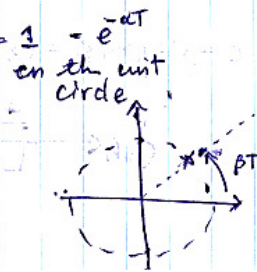 = 1 - e^-αT
on the unit
circle
βT